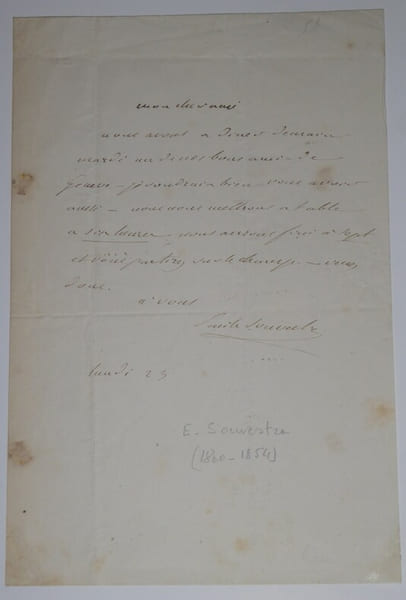 mon cher ami
nous avons a diner demain
mardi un de nos bons amis de
Geneve – je voudrais bien vous avoir
aussi – nous nous mettrons a table
a six heures nous aurons fini à sept
et vous partirez sur le
donc.
à vous
Emile Souvestre
lundi 23
E. Souvestre
(1800-1854)